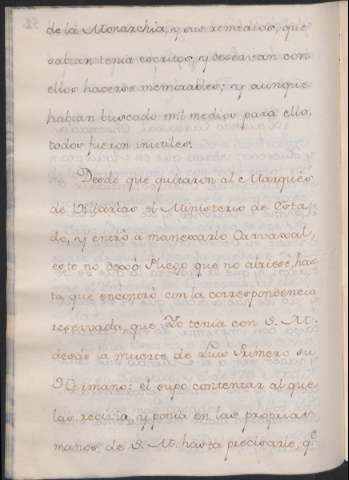 de la Monarchia, y sus remedios, que
sabian tenia escritos, y deseavan con
ellos hacerse memorables; y aunque
habian buscado mil medios para ello,
todos fueron inutiles.
Desde que quitaron al Marqués
de Villarias el Ministerio de Esta-
do, y entró a manejarlo Carvaxal,
este no dexó Pliego que no abriese, has
ta que encontró con la correspondencia
reservada, que Yo tenia con S. M.
desde la muerte de Luis Primero su
Hermano: el supo contentar al que
las recivia, y ponia en las proprias
manos de S. M. hasta precisarle, qe